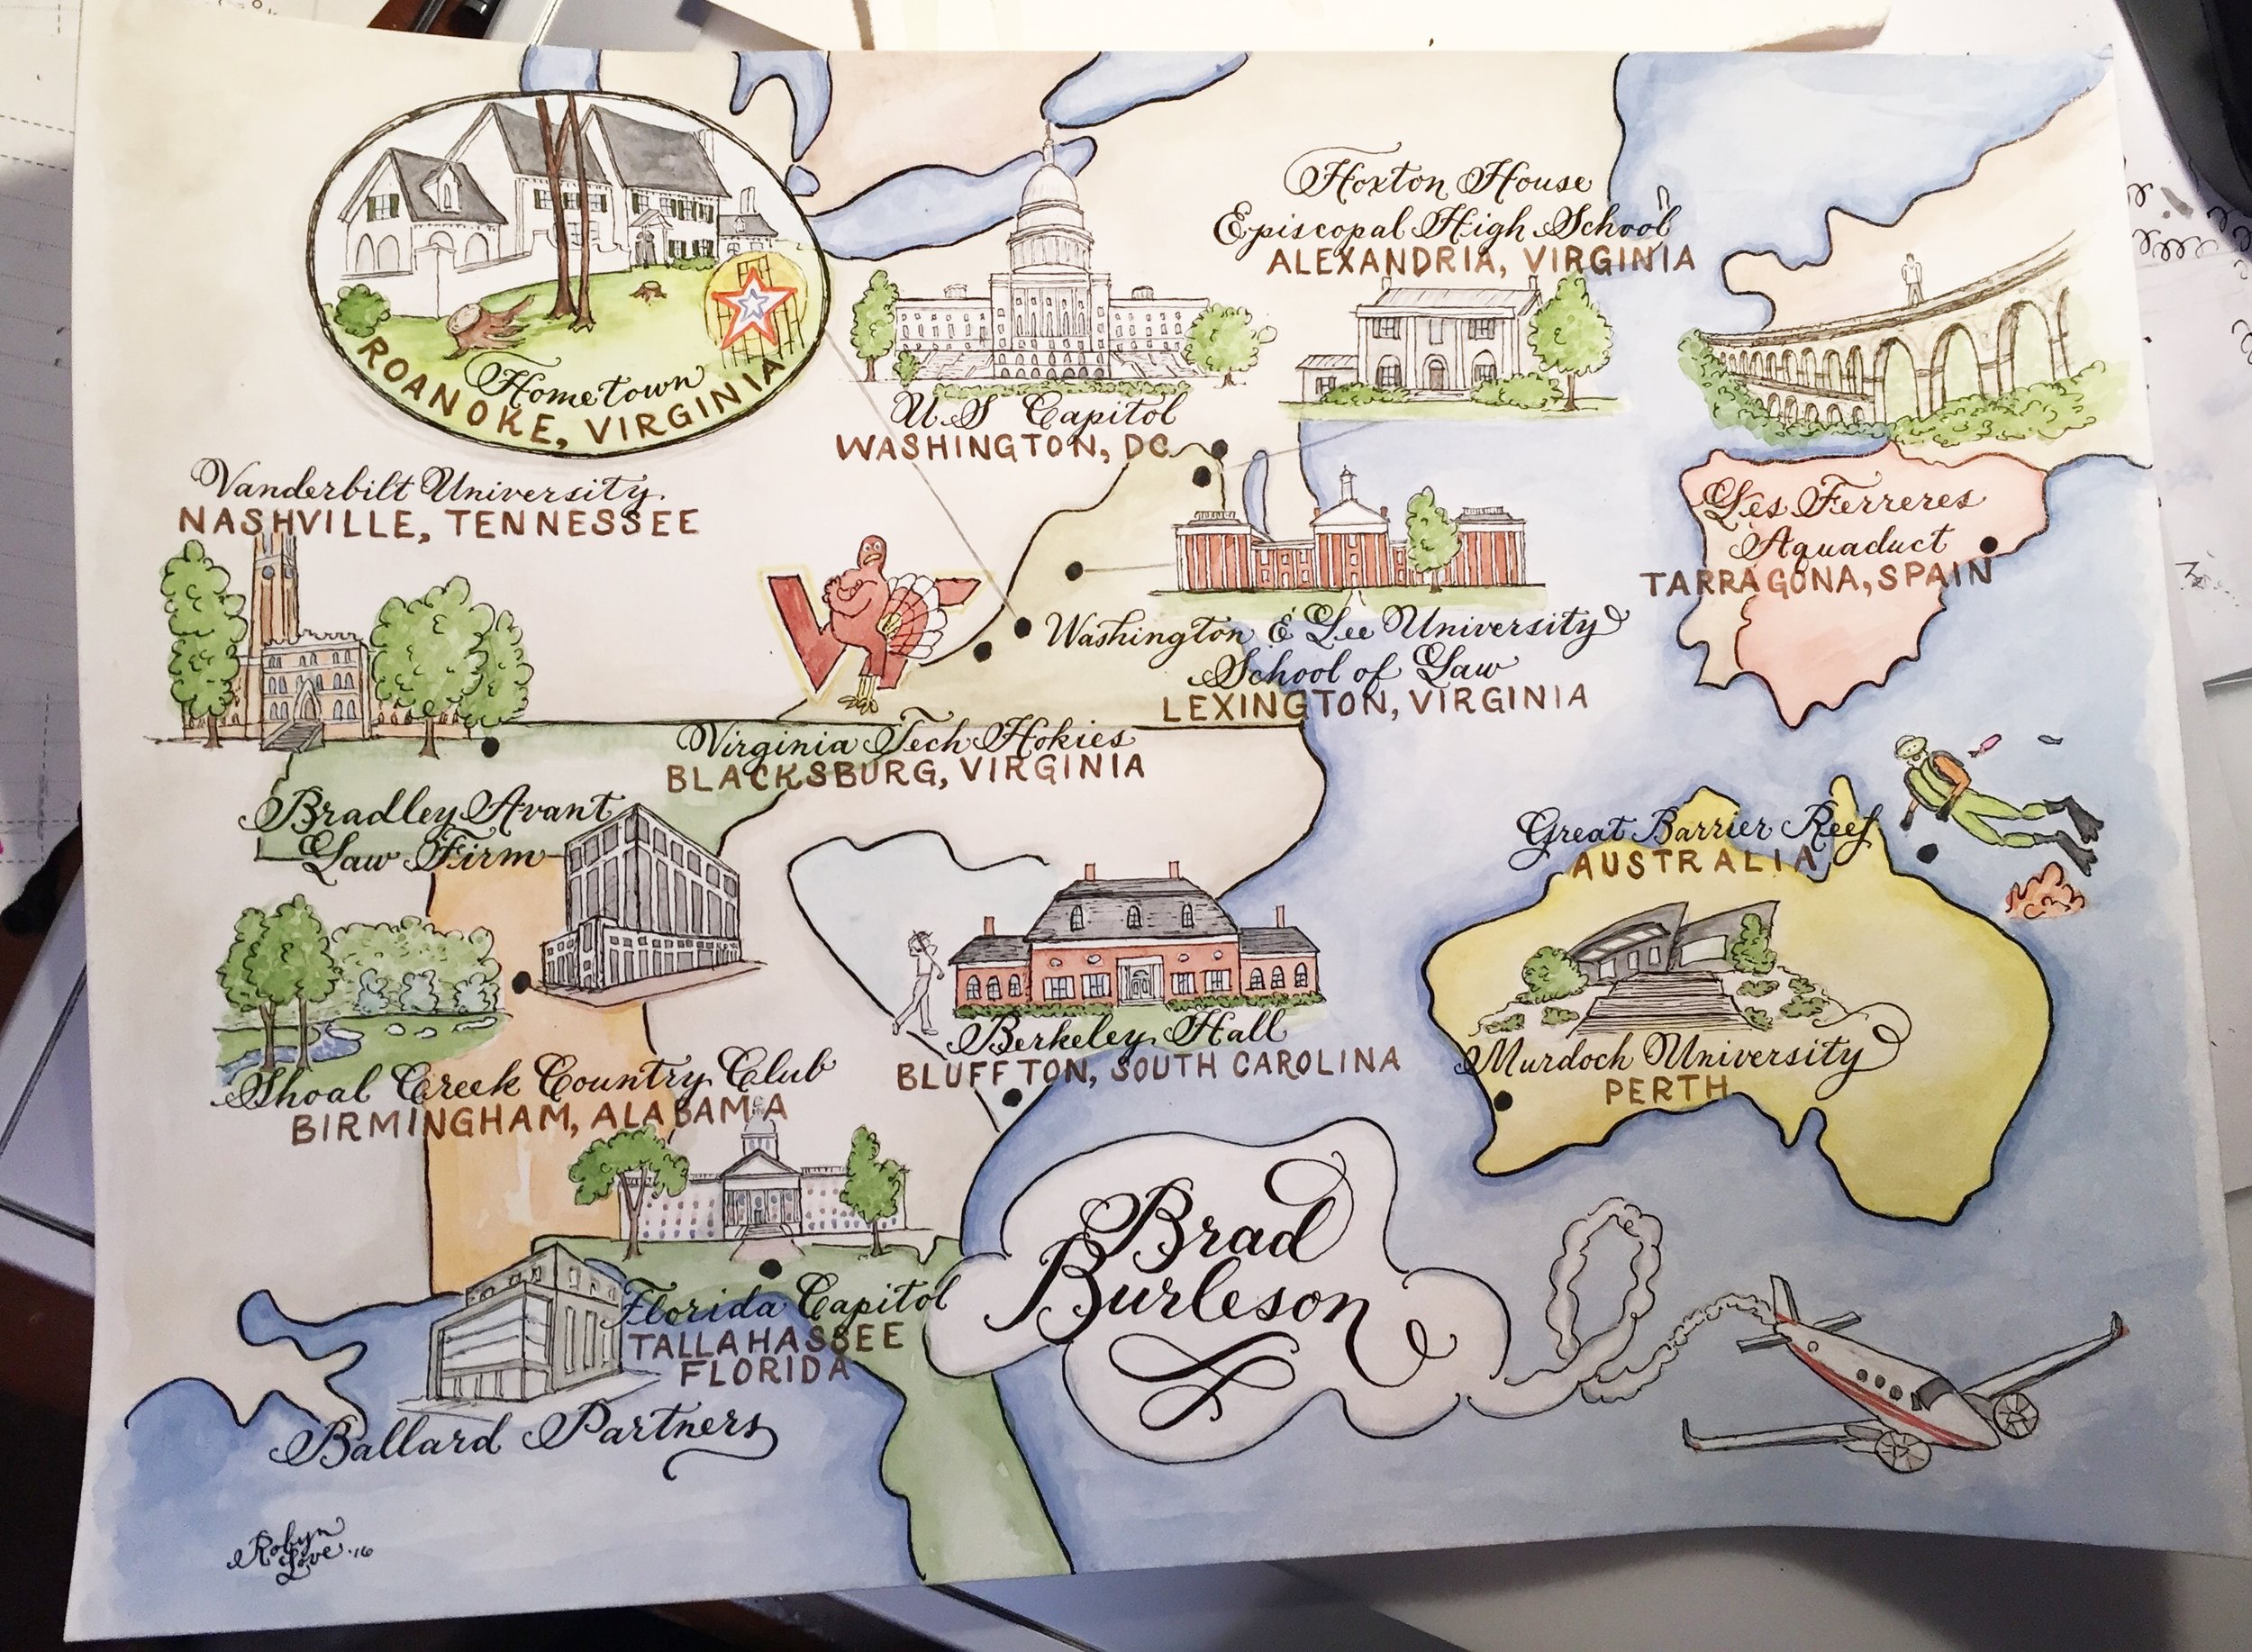 Hometown
ROANOKE, VIRGINIA
U.S Capitol
WASHINGTON, DC
Hoxton House
Episcopal High School
ALEXANDRIA, VIRGINIA
Les Ferreres
Aquaduct
TARRAGONA, SPAIN
Vanderbilt University
NASHVILLE, TENNESSEE
Washington & Lee University
School of Law
LEXINGTON, VIRGINIA
Virginia Tech Hokies
BLACKSBURG, VIRGINIA
Bradley Avant
Law Firm
Great Barrier Reef
AUSTRALIA
Shoal Creek Country Club
BIRMINGHAM, ALABAMA
Berkeley Hall
BLUFFTON, SOUTH CAROLINA
Murdoch University
PERTH
Florida Capitol
TALLAHASSEE
FLORIDA
Ballard Partners
Brad
Burleson
Robyn
Love '16